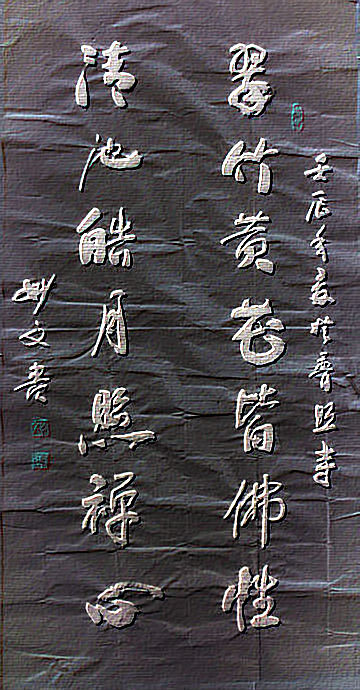 壬辰年夏於普照寺
翠竹黄花皆佛性
清池皓月照禅心
妙文书